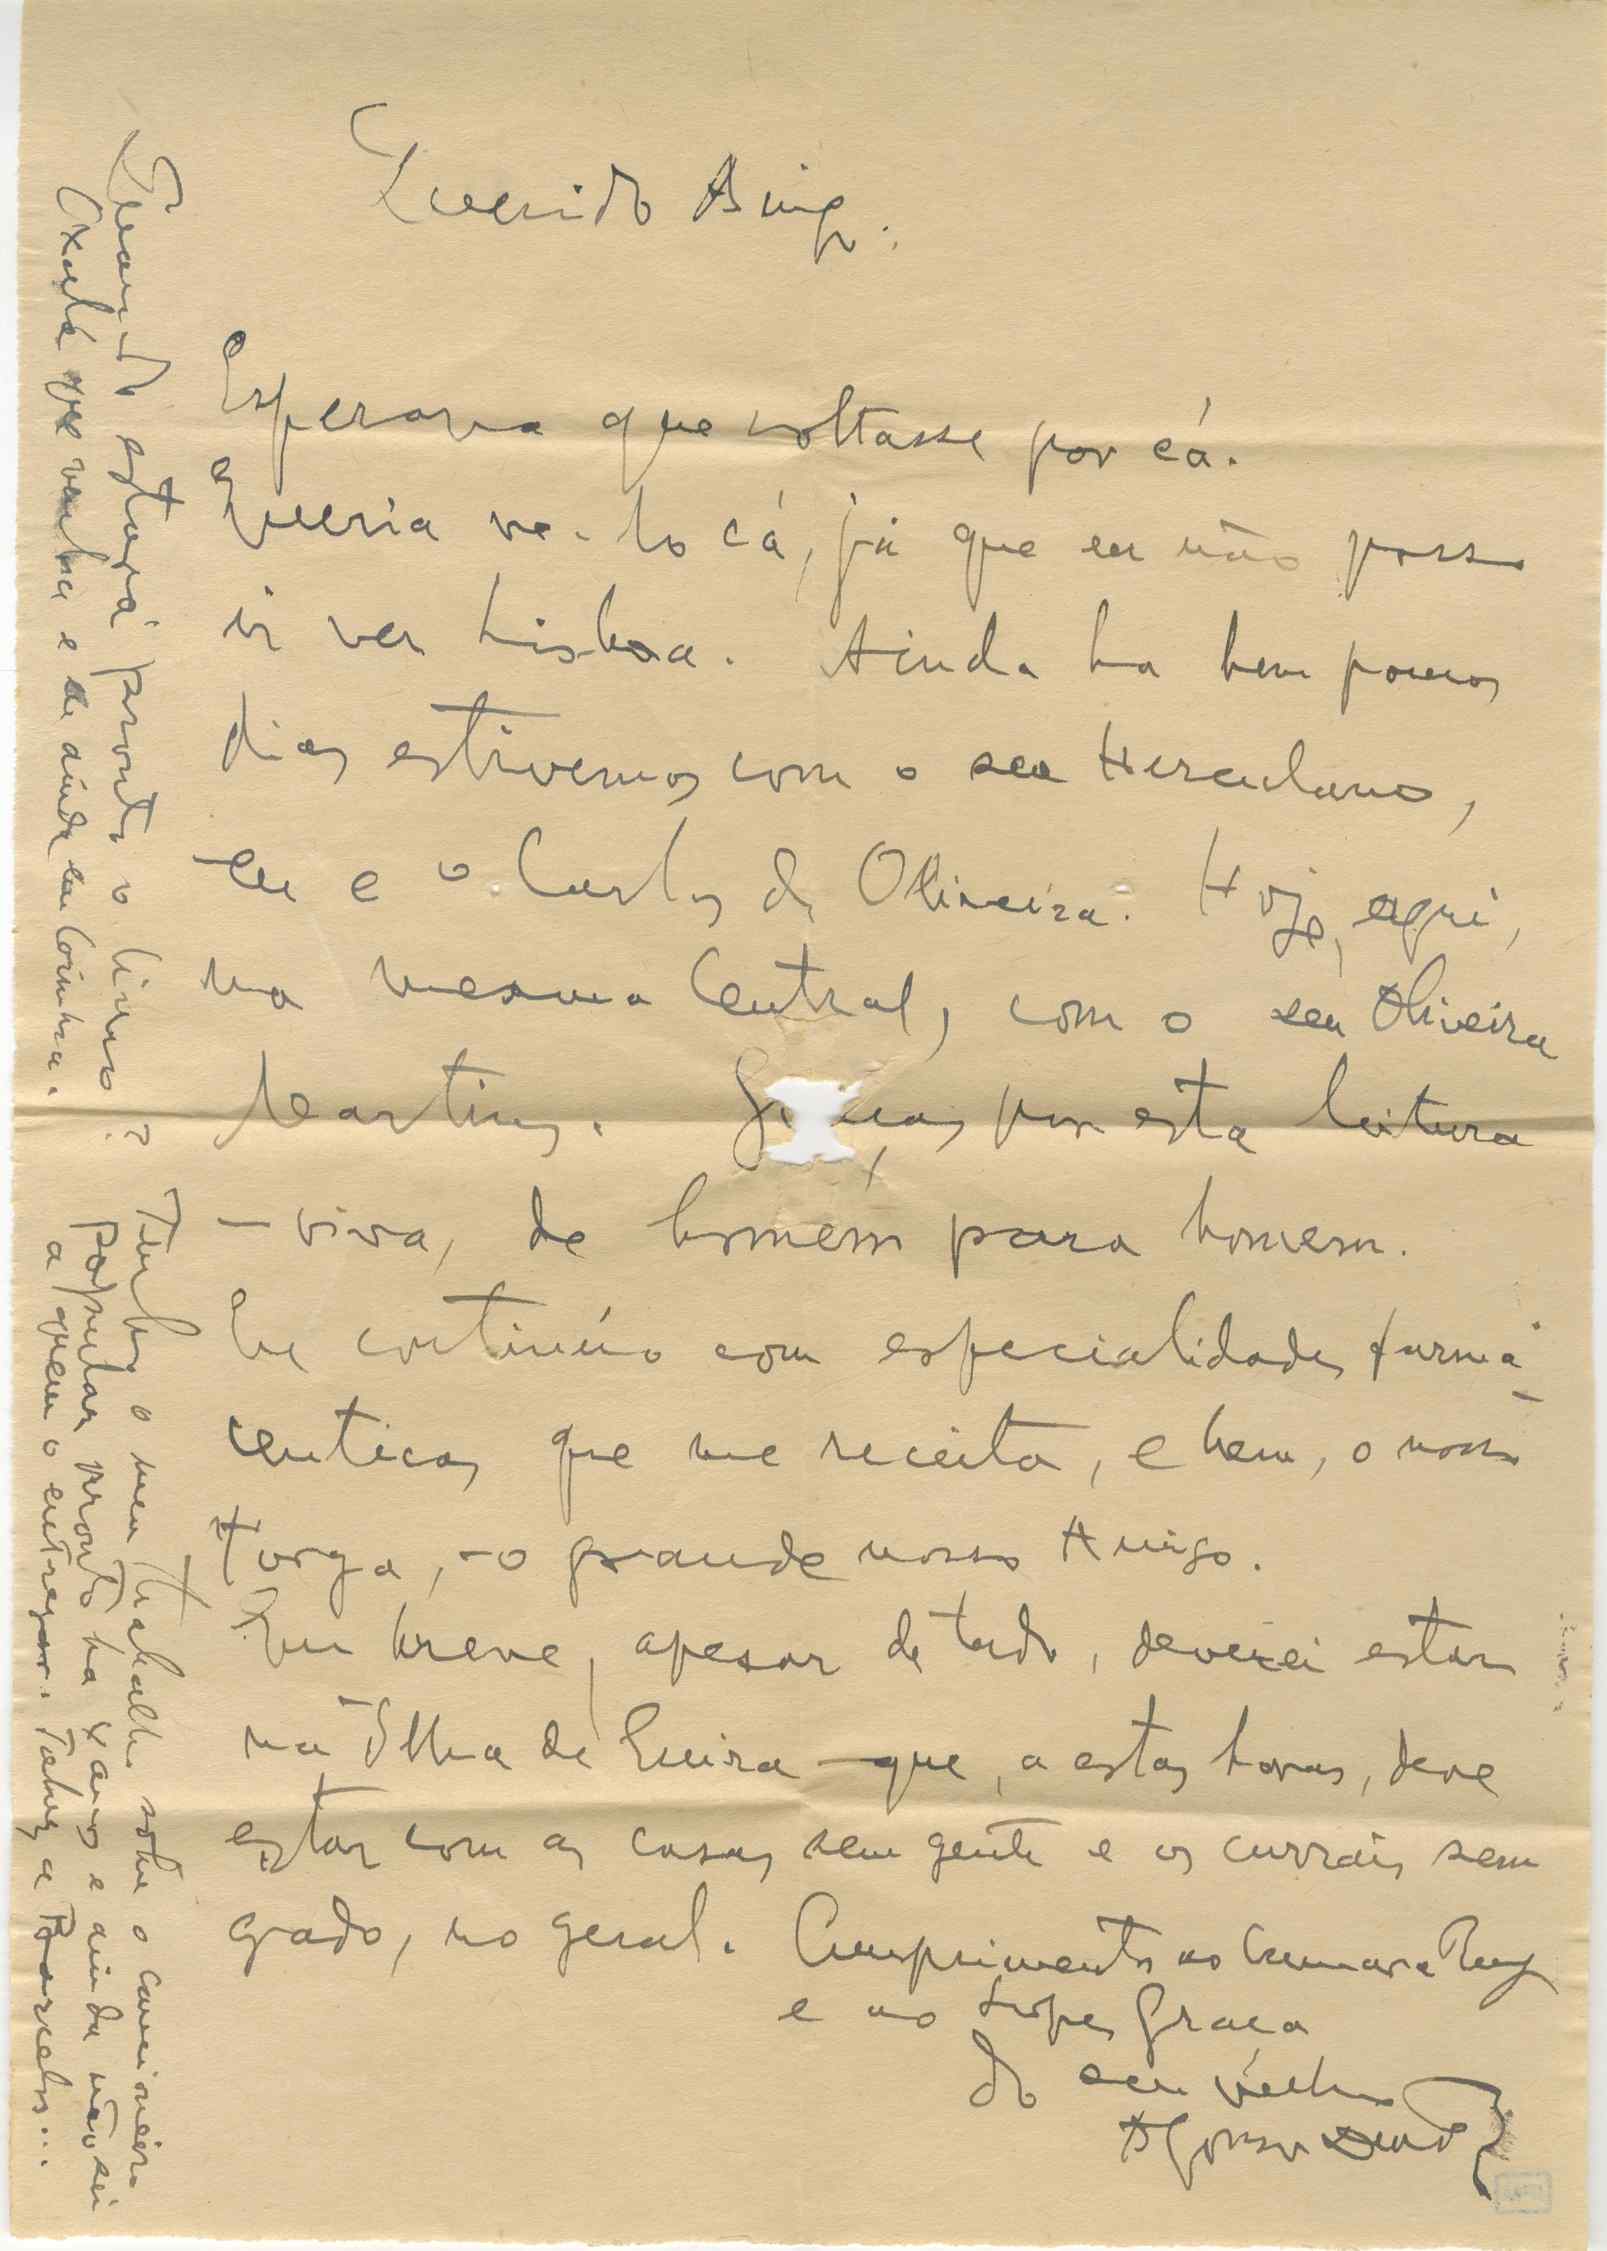 Querido Amigo:
Esperava que voltasse por cá.
Queria ve-lo cá, já que eu não posso
ir ver Lisboa. Ainda ha bem poucos
dias estivemos com o seu Herculano,
eu e o Carlos de Oliveira. Hoje, aqui,
na mesma Central, com o seu Oliveira
Martins. por esta leitura
– viva, de homem para homem.
Eu continúo com especialidades farma-
ceuticas que me receita, e bem, o nosso
Torga, – o grande nosso Amigo.
Em breve, apesar de tudo, deverei estar
na Ilha de – que, a estas horas, deve
estar com as casas sem gente e os currais sem
gado, no geral. Cumprimentos ao
e ao Lopes Graça
do seu velho
Afonso Duarte
Quando estará pronto o livro?
Oxalá que venha e de ainda em Coimbra.
Tenho o meu trabalho sobre o cancioneiro
popular pronto ha x anos e ainda não sei
a quem o entregar. Talvez a Barcelos...